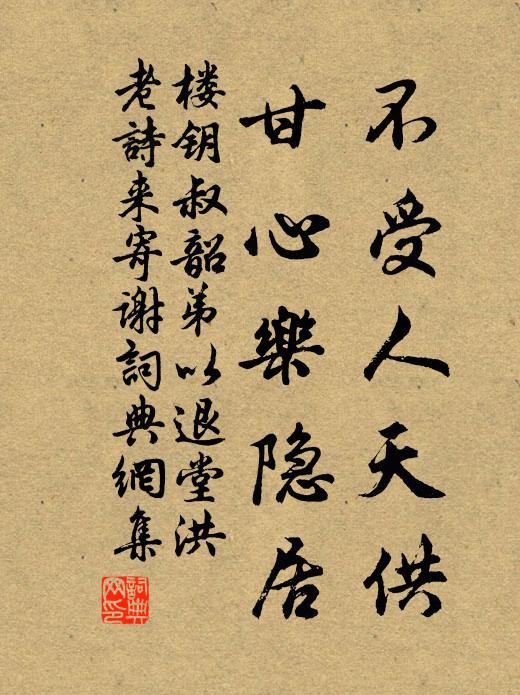 不受人天供
甘心樂隐居
楼钥叔韶弟以退堂洪
老詩来寄谢詞典網集
詞典网印